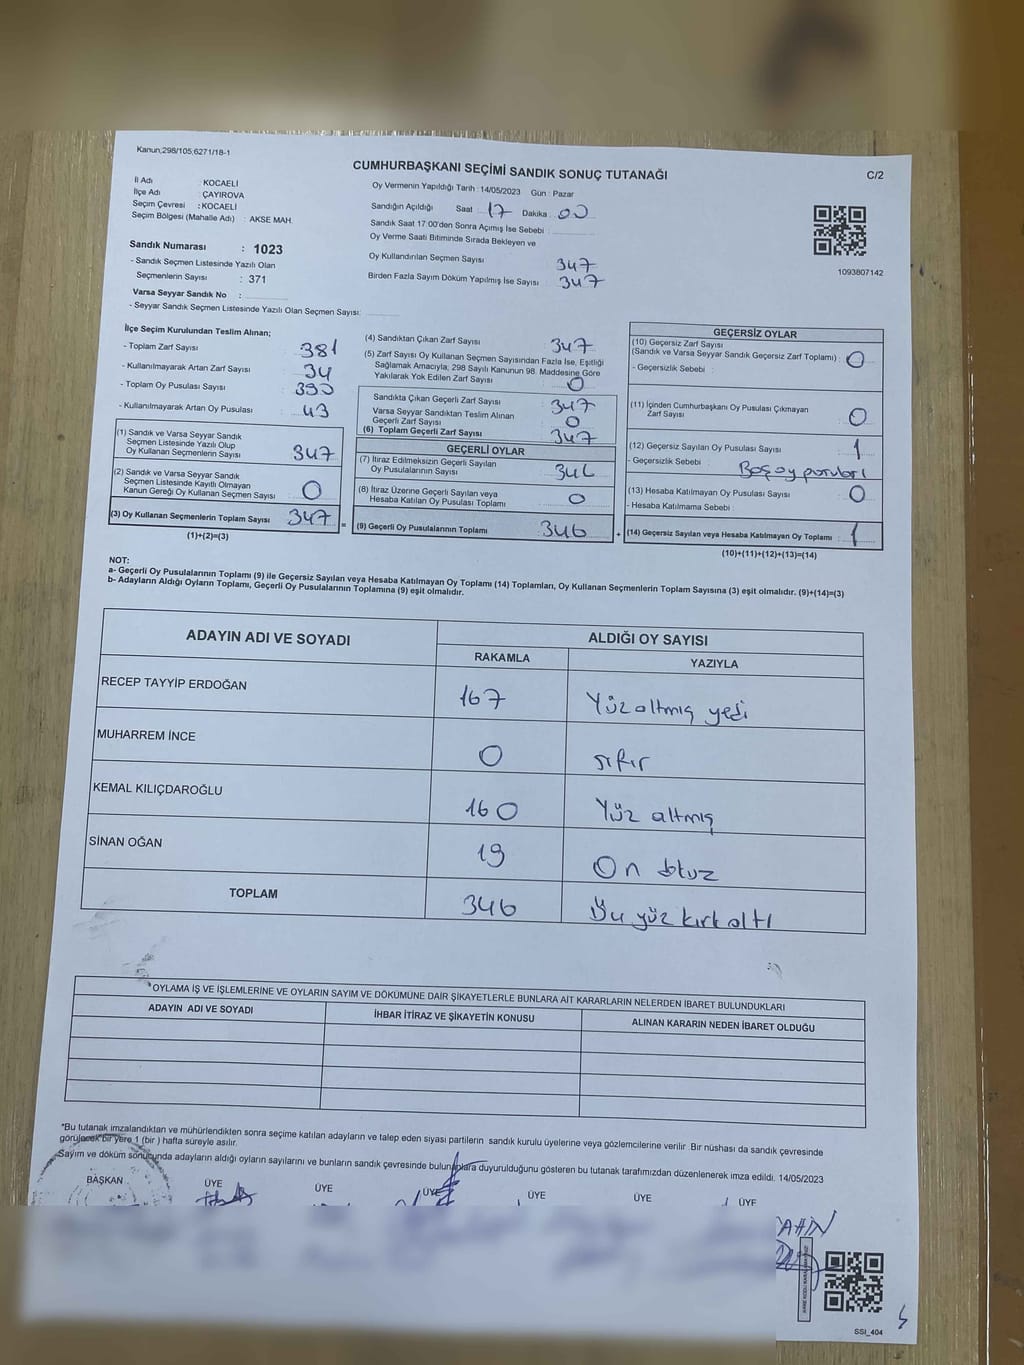 Kanun;298/105;6271/18-1
CUMHURBAŞKANI SEÇİMİ SANDIK SONUÇ TUTANAĞI
C/2
İl Adı : KOCAELİ
İlçe Adı : ÇAYIROVA
Seçim Çevresi : KOCAELİ
Seçim Bölgesi (Mahalle Adı) : AKSE MAH.
Oy Vermenin Yapıldığı Tarih : 14/05/2023 Gün : Pazar
Sandığın Açıldığı Saat : 17 Dakika : 00
Sandık Saat 17:00'den Sonra Açımış İse Sebebi :
Oy Verme Saati Bitiminde Sırada Bekleyen ve
Oy Kullandırılan Seçmen Sayısı 347
Birden Fazla Sayım Döküm Yapılmış İse Sayısı 347
1093807142
Sandık Numarası : 1023
- Sandık Seçmen Listesinde Yazılı Olan
Seçmenlerin Sayısı : 371
Varsa Seyyar Sandık No :
- Seyyar Sandık Seçmen Listesinde Yazılı Olan Seçmen Sayısı:
İlçe Seçim Kurulundan Teslim Alınan;
- Toplam Zarf Sayısı 381
- Kullanılmayarak Artan Zarf Sayısı 34
- Toplam Oy Pusulası Sayısı 390
- Kullanılmayarak Artan Oy Pusulası 43
(1) Sandık ve Varsa Seyyar Sandık
Seçmen Listesinde Yazılı Olup
Oy Kullanan Seçmenlerin Sayısı 347
(2) Sandık ve Varsa Seyyar Sandık
Seçmen Listesinde Kayıtlı Olmayan
Kanun Gereği Oy Kullanan Seçmen Sayısı 0
(3) Oy Kullanan Seçmenlerin Toplam Sayısı 347 =
(1)+(2)=(3)
(4) Sandıktan Çıkan Zarf Sayısı 347
(5) Zarf Sayısı Oy Kullanan Seçmen Sayısından Fazla İse, Eşitliği
Sağlamak Amacıyla; 298 Sayılı Kanunun 98. Maddesine Göre
Yakılarak Yok Edilen Zarf Sayısı 0
Sandıkta Çıkan Geçerli Zarf Sayısı : 347
Varsa Seyyar Sandıktan Teslim Alınan
Geçerli Zarf Sayısı : 0
(6) Toplam Geçerli Zarf Sayısı 347
GEÇERLİ OYLAR
(7) İtiraz Edilmeksizin Geçerli Sayılan
Oy Pusulalarının Sayısı 346
(8) İtiraz Üzerine Geçerli Sayılan veya
Hesaba Katılan Oy Pusulası Toplamı 0
(9) Geçerli Oy Pusulalarının Toplamı 346 +
GEÇERSİZ OYLAR
(10) Geçersiz Zarf Sayısı
(Sandık ve Varsa Seyyar Sandık Geçersiz Zarf Toplamı) : 0
- Geçersizlik Sebebi :
(11) İçinden Cumhurbaşkanı Oy Pusulası Çıkmayan
Zarf Sayısı 0
(12) Geçersiz Sayılan Oy Pusulası Sayısı 1
- Geçersizlik Sebebi : Boş oy pusuları
(13) Hesaba Katılmayan Oy Pusulası Sayısı 0
- Hesaba Katılmama Sebebi :
(14) Geçersiz Sayılan veya Hesaba Katılmayan Oy Toplamı : 1
(10)+(11)+(12)+(13)=(14)
NOT:
a- Geçerli Oy Pusulalarının Toplamı (9) ile Geçersiz Sayılan veya Hesaba Katılmayan Oy Toplamı (14) Toplamları, Oy Kullanan Seçmenlerin Toplam Sayısına (3) eşit olmalıdır. (9)+(14)=(3)
b- Adayların Aldığı Oyların Toplamı, Geçerli Oy Pusulalarının Toplamına (9) eşit olmalıdır.
ADAYIN ADI VE SOYADI ALDIĞI OY SAYISI
RAKAMLA YAZIYLA
RECEP TAYYİP ERDOĞAN 167 Yüz altmış yedi
MUHARREM İNCE 0 sıfır
KEMAL KILIÇDAROĞLU 160 Yüz altmış
SİNAN OĞAN 19 On dokuz
TOPLAM 346 Üç yüz kırk altı
OYLAMA İŞ VE İŞLEMLERİNE VE OYLARIN SAYIM VE DÖKÜMÜNE DAİR ŞİKAYETLERLE BUNLARA AİT KARARLARIN NELERDEN İBARET BULUNDUKLARI
ADAYIN ADI VE SOYADI İHBAR İTİRAZ VE ŞİKAYETİN KONUSU ALINAN KARARIN NEDEN İBARET OLDUĞU
*Bu tutanak imzalandıktan ve mühürlendikten sonra seçime katılan adayların ve talep eden siyasi partilerin sandık kurulu üyelerine veya gözlemcilerine verilir. Bir nüshası da sandık çevresinde
görülecek bir yere 1 (bir ) hafta süreyle asılır.
Sayım ve döküm sonucunda adayların aldığı oyların sayılarını ve bunların sandık çevresinde bulunanlara duyurulduğunu gösteren bu tutanak tarafımızdan düzenlenerek imza edildi. 14/05/2023
BAŞKAN ÜYE ÜYE ÜYE ÜYE ÜYE ÜYE
SSI_404